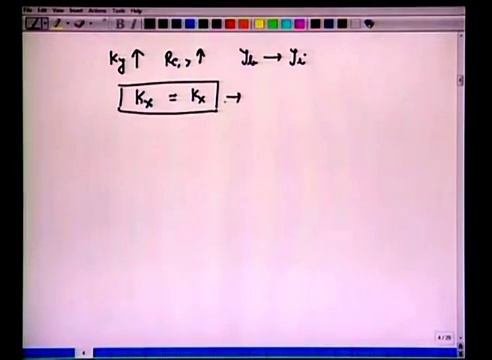 File Edit View Insert Actions Tools Help
Ky ↑ Re,> ↑ yb → yi
Kx = kx →
4
4 / 25